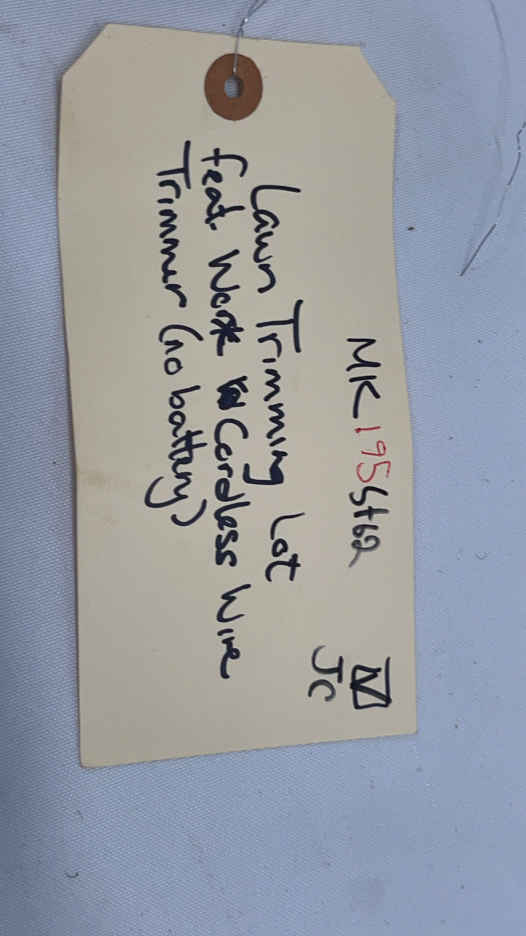 MK195St62
JC
Lawn Trimming Lot
feat. Worx Cordless Wire
Trimmer (no battery)